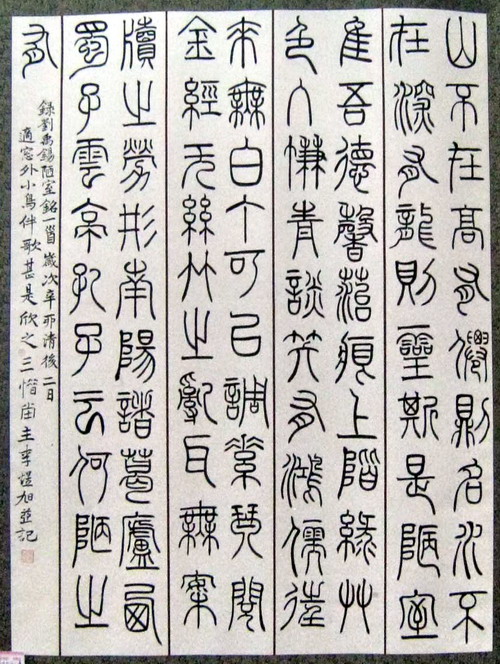 山不在高有僊則名水不
在深有龍則靈斯是陋室
隹吾德馨菭痕上階綠艸
色入㡘青談笑有鴻儒往
來無白丁可以調素琴閱
金經无絲竹之亂耳無案
牘之勞形南陽諸葛廬西
蜀子雲亭孔子云何陋之
有
錄劉禹錫陋室銘一首歲次辛卯清後二日
適窓外小鳥伴歌甚是欣之三惜主李旭並記